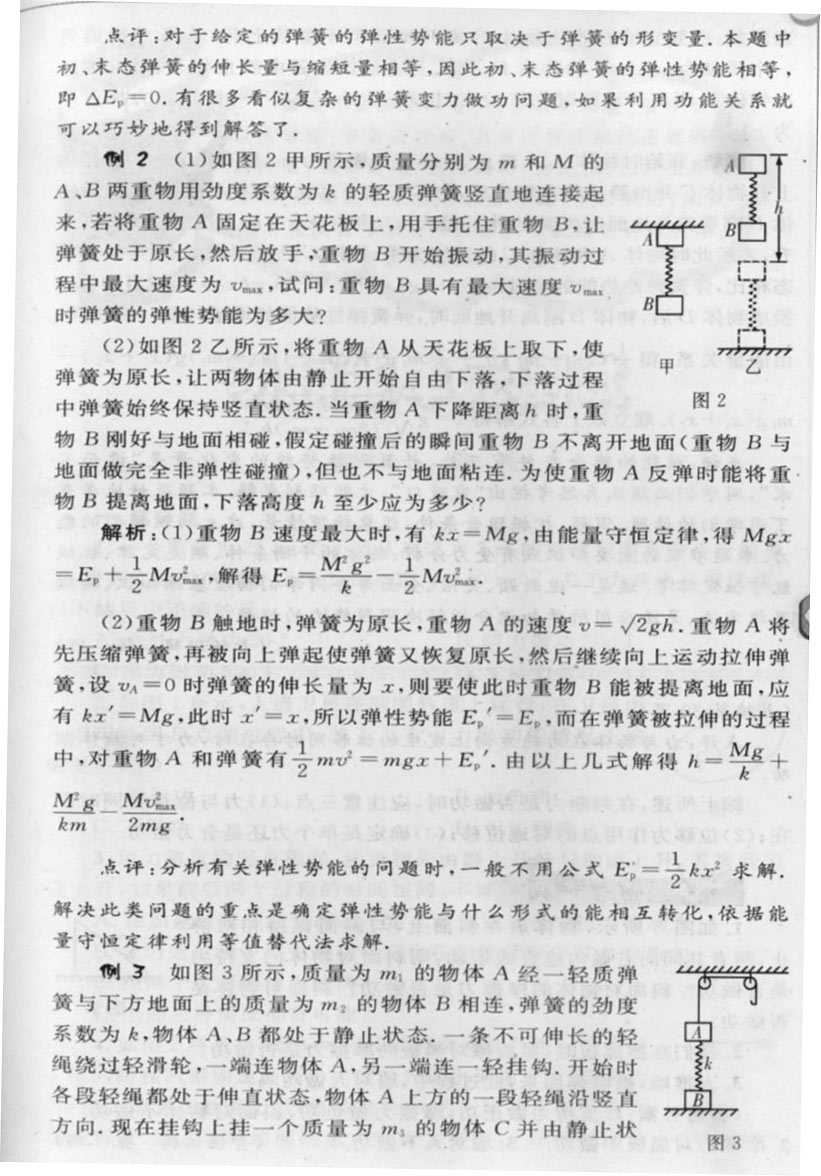 点评:对于给定的弹簧的弹性势能只取决于弹簧的形变量.本题中
初、末态弹簧的伸长量与缩短量相等,因此初、末态弹簧的弹性势能相等,
即 △Eₚ=0.有很多看似复杂的弹簧变力做功问题,如果利用功能关系就
可以巧妙地得到解答了.
例 2 (1)如图 2 甲所示,质量分别为 m 和 M 的
A、B 两重物用劲度系数为 k 的轻质弹簧竖直地连接起
来,若将重物 A 固定在天花板上,用手托住重物 B,让
弹簧处于原长,然后放手,重物 B 开始振动,其振动过
程中最大速度为 vmax,试问:重物 B 具有最大速度 vmax
时弹簧的弹性势能为多大?
(2)如图 2 乙所示,将重物 A 从天花板上取下,使
弹簧为原长,让两物体由静止开始自由下落,下落过程
中弹簧始终保持竖直状态.当重物 A 下降距离 h 时,重
A
h
B
A
B
甲
乙
图 2
物 B 刚好与地面相碰,假定碰撞后的瞬间重物 B 不离开地面(重物 B 与
地面做完全非弹性碰撞),但也不与地面粘连.为使重物 A 反弹时能将重
物 B 提离地面,下落高度 h 至少应为多少?
解析:(1)重物 B 速度最大时,有 kx=Mg,由能量守恒定律,得 Mgx
=Eₚ+1/2 Mv²max,解得 Eₚ=M²g²/k-1/2 Mv²max.
(2)重物 B 触地时,弹簧为原长,重物 A 的速度 v=√2gh.重物 A 将
先压缩弹簧,再被向上弹起使弹簧又恢复原长,然后继续向上运动拉伸弹
簧,设 vA=0 时弹簧的伸长量为 x,则要使此时重物 B 能被提离地面,应
有 kx′=Mg,此时 x′=x,所以弹性势能 Eₚ′=Eₚ,而在弹簧被拉伸的过程
中,对重物 A 和弹簧有 1/2 mv²=mgx+Eₚ′.由以上几式解得 h=Mg/k+
M²g/km-Mv²max/2mg.
点评:分析有关弹性势能的问题时,一般不用公式 Eₚ=1/2 kx² 求解.
解决此类问题的重点是确定弹性势能与什么形式的能相互转化,依据能
量守恒定律利用等值替代法求解.
例 3 如图 3 所示,质量为 m₁ 的物体 A 经一轻质弹
簧与下方地面上的质量为 m₂ 的物体 B 相连,弹簧的劲度
系数为 k,物体 A、B 都处于静止状态.一条不可伸长的轻
绳绕过轻滑轮,一端连物体 A,另一端连一轻挂钩.开始时
各段轻绳都处于伸直状态,物体 A 上方的一段轻绳沿竖直
方向.现在挂钩上挂一个质量为 m₃ 的物体 C 并由静止状
A
k
B
图 3